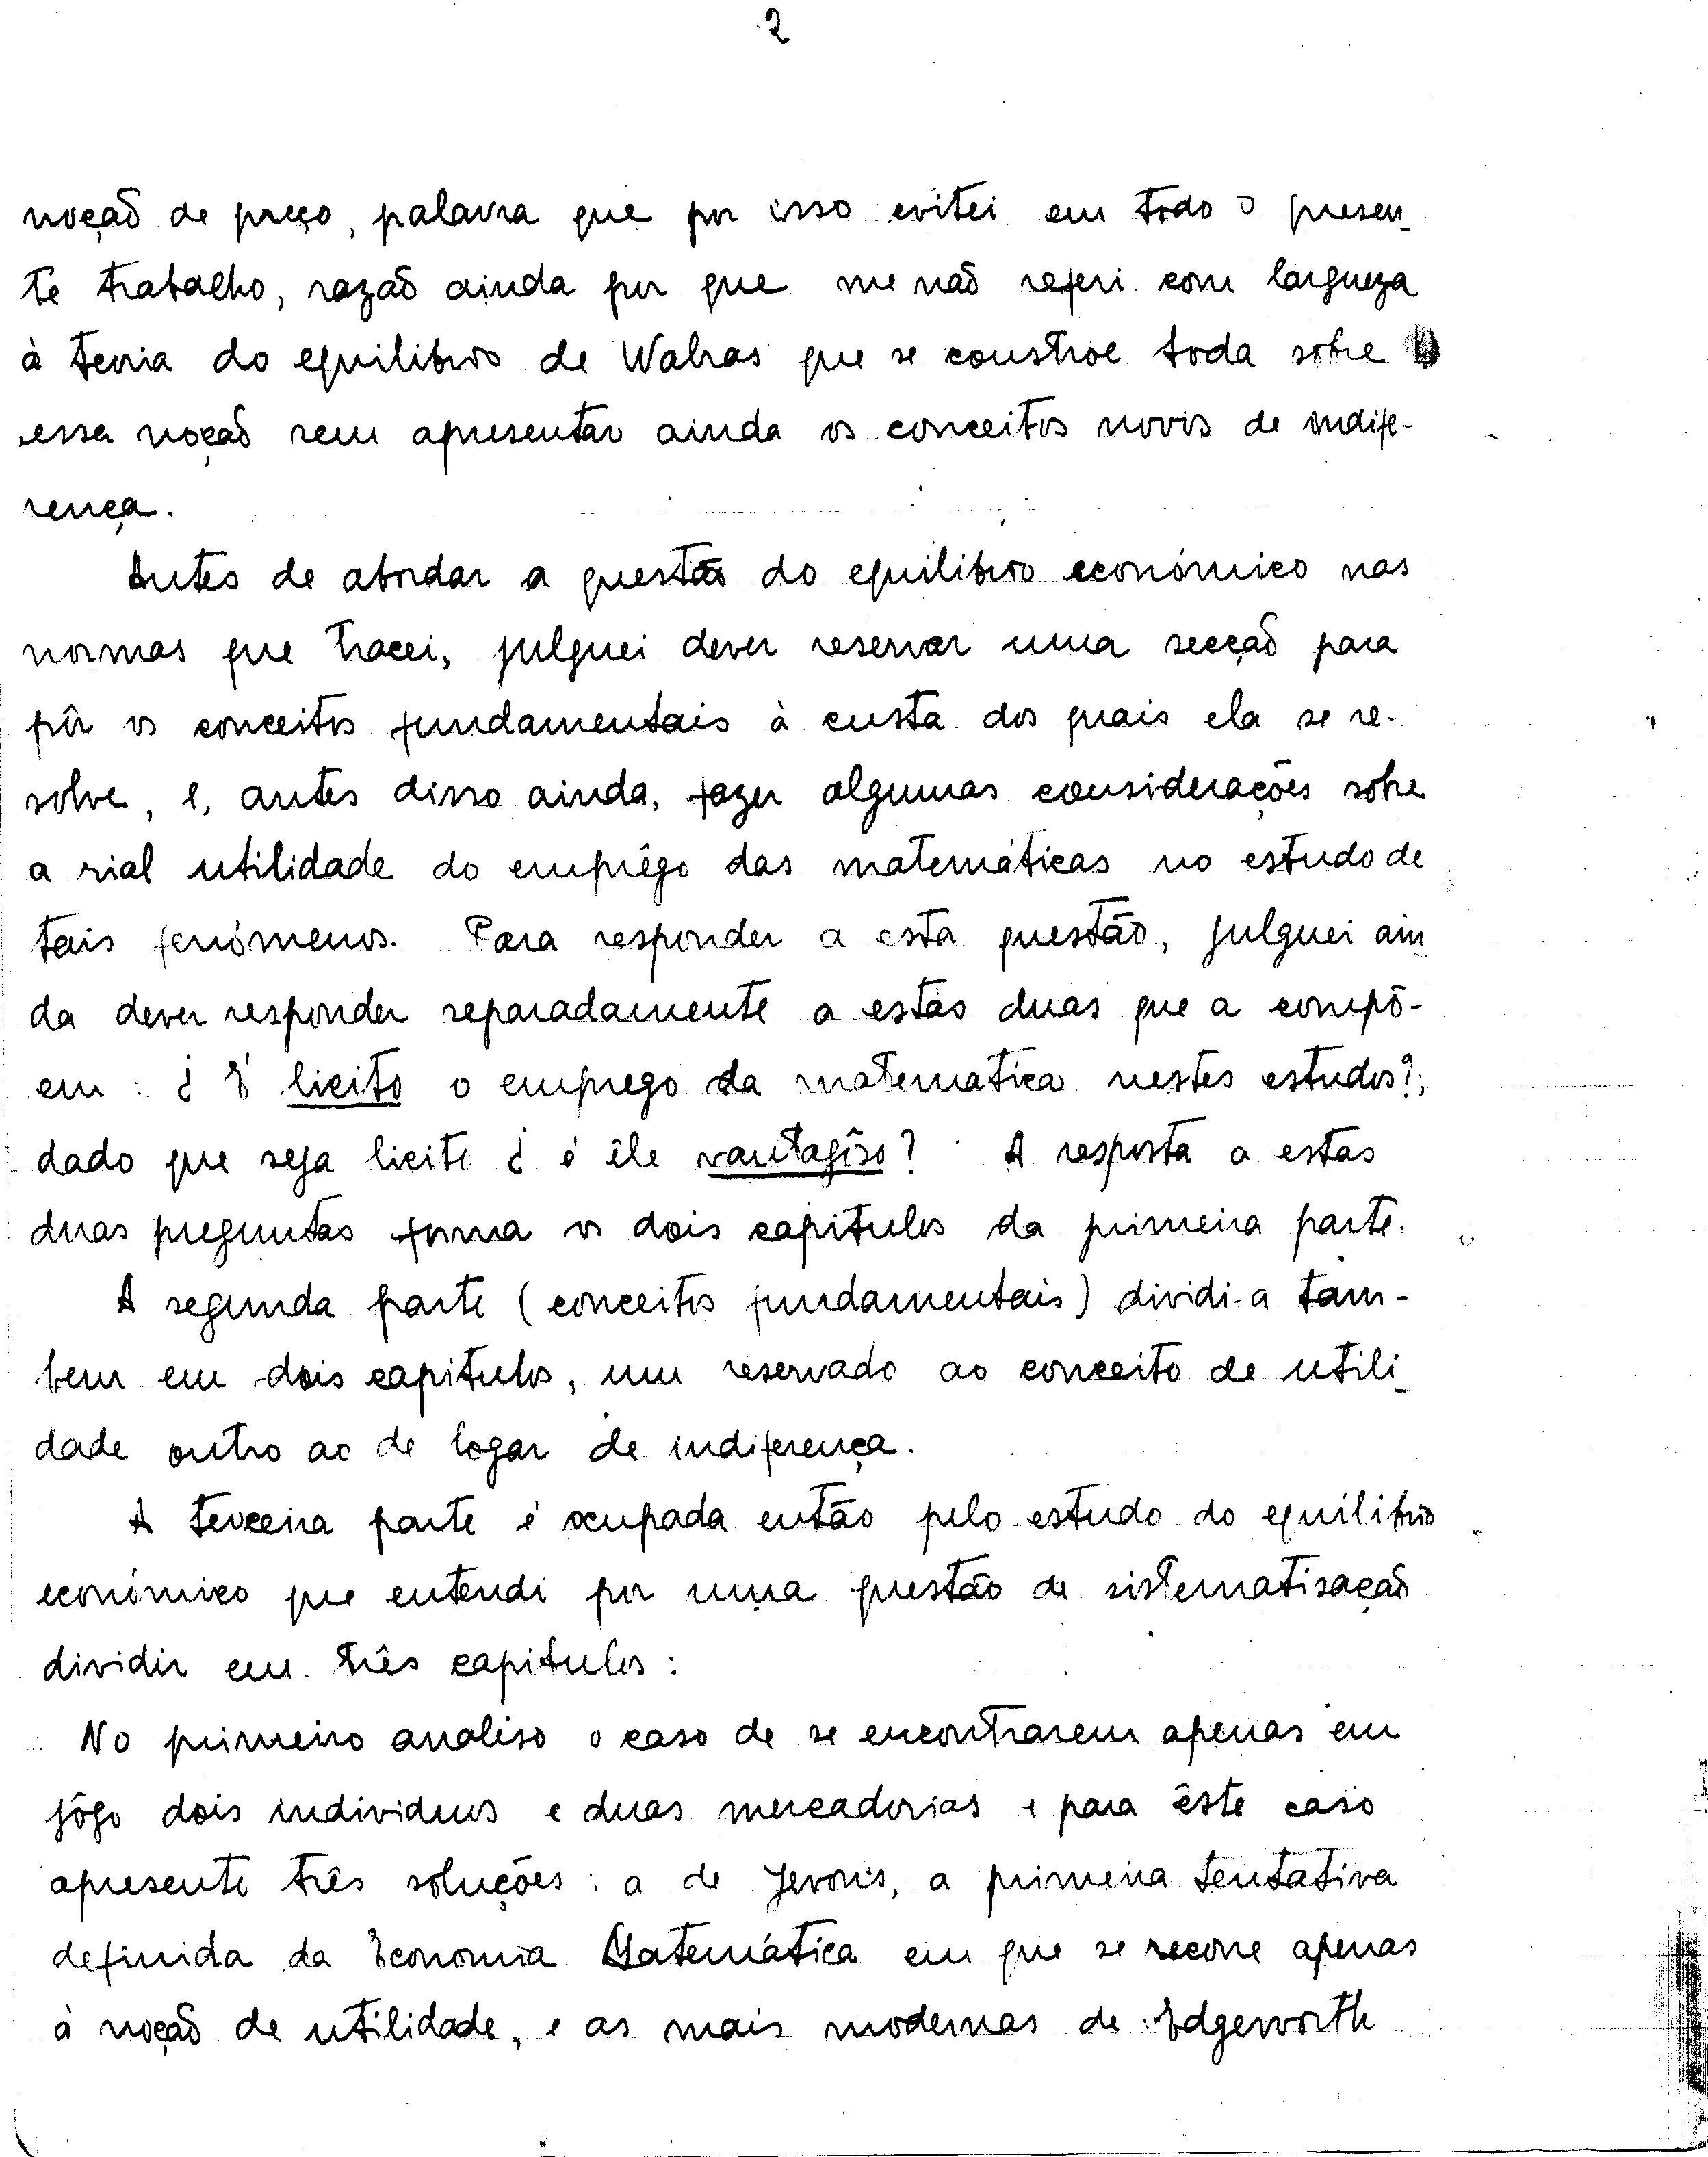 2
noção de preço, palavra que por isso evitei em todo o presen-
te trabalho, razão ainda por que me não referi com largueza
à teoria do equilibrio de Walras que se constroe toda sobre
essa noção sem apresentar ainda os conceitos novos de indife-
rença.
Antes de abordar a questão do equilibrio económico nas
normas que tracei, julguei dever reservar uma secção para
pôr os conceitos fundamentais à custa dos quais ela se re-
solve, e, antes disso ainda, fazer algumas considerações sobre
a rial utilidade do emprêgo das matemáticas no estudo de
tais fenómenos. Para responder a esta questão, julguei ain-
da dever responder separadamente a estas duas que a compõ-
em: ¿ É licito o emprego da matematica nestes estudos?;
dado que seja licito ¿ é êle vantajôso? A resposta a estas
duas preguntas forma os dois capitulos da primeira parte.
A segunda parte (conceitos fundamentais) dividi-a tam-
bem em dois capitulos, um reservado ao conceito de utili-
dade outro ao de logar de indiferença.
A terceira parte é ocupada então pelo estudo do equilibrio
económico que entendi por uma questão de sistematisação
dividir em três capitulos:
No primeiro analiso o caso de se encontrarem apenas em
jôgo dois individuos e duas mercadorias e para êste caso
apresento três soluções: a de Jevons, a primeira tentativa
definida da Economia Matemática em que se recorre apenas
à noção de utilidade, e as mais modernas de Edgeworth